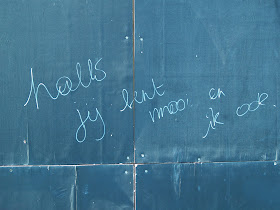 hallo
jij bent mooi en
ik ook